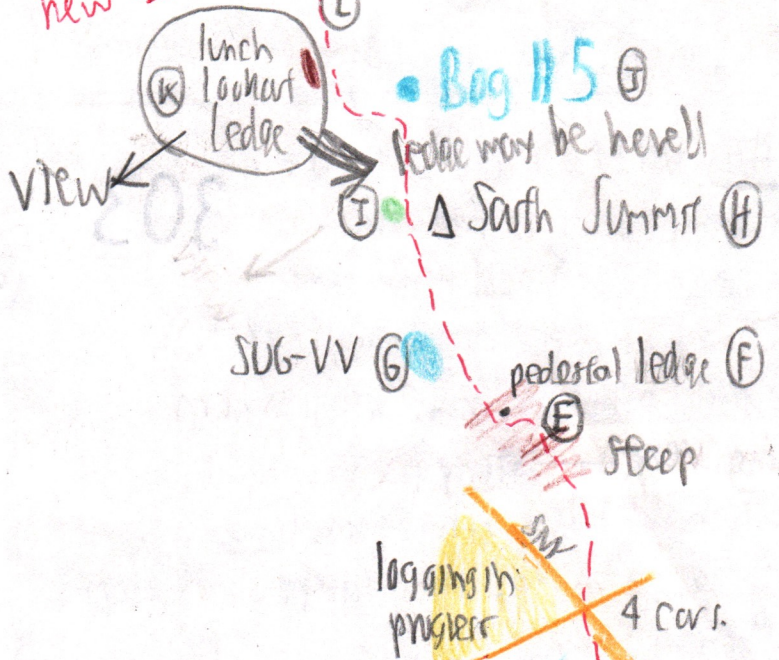 new
L
lunch
K lookout
ledge
Bog #5 J
ledge may be here!!
VIEW
I Δ South Summit H
SUG-VV G
pedestal ledge F
E
steep
logging in
progress
4 cars.